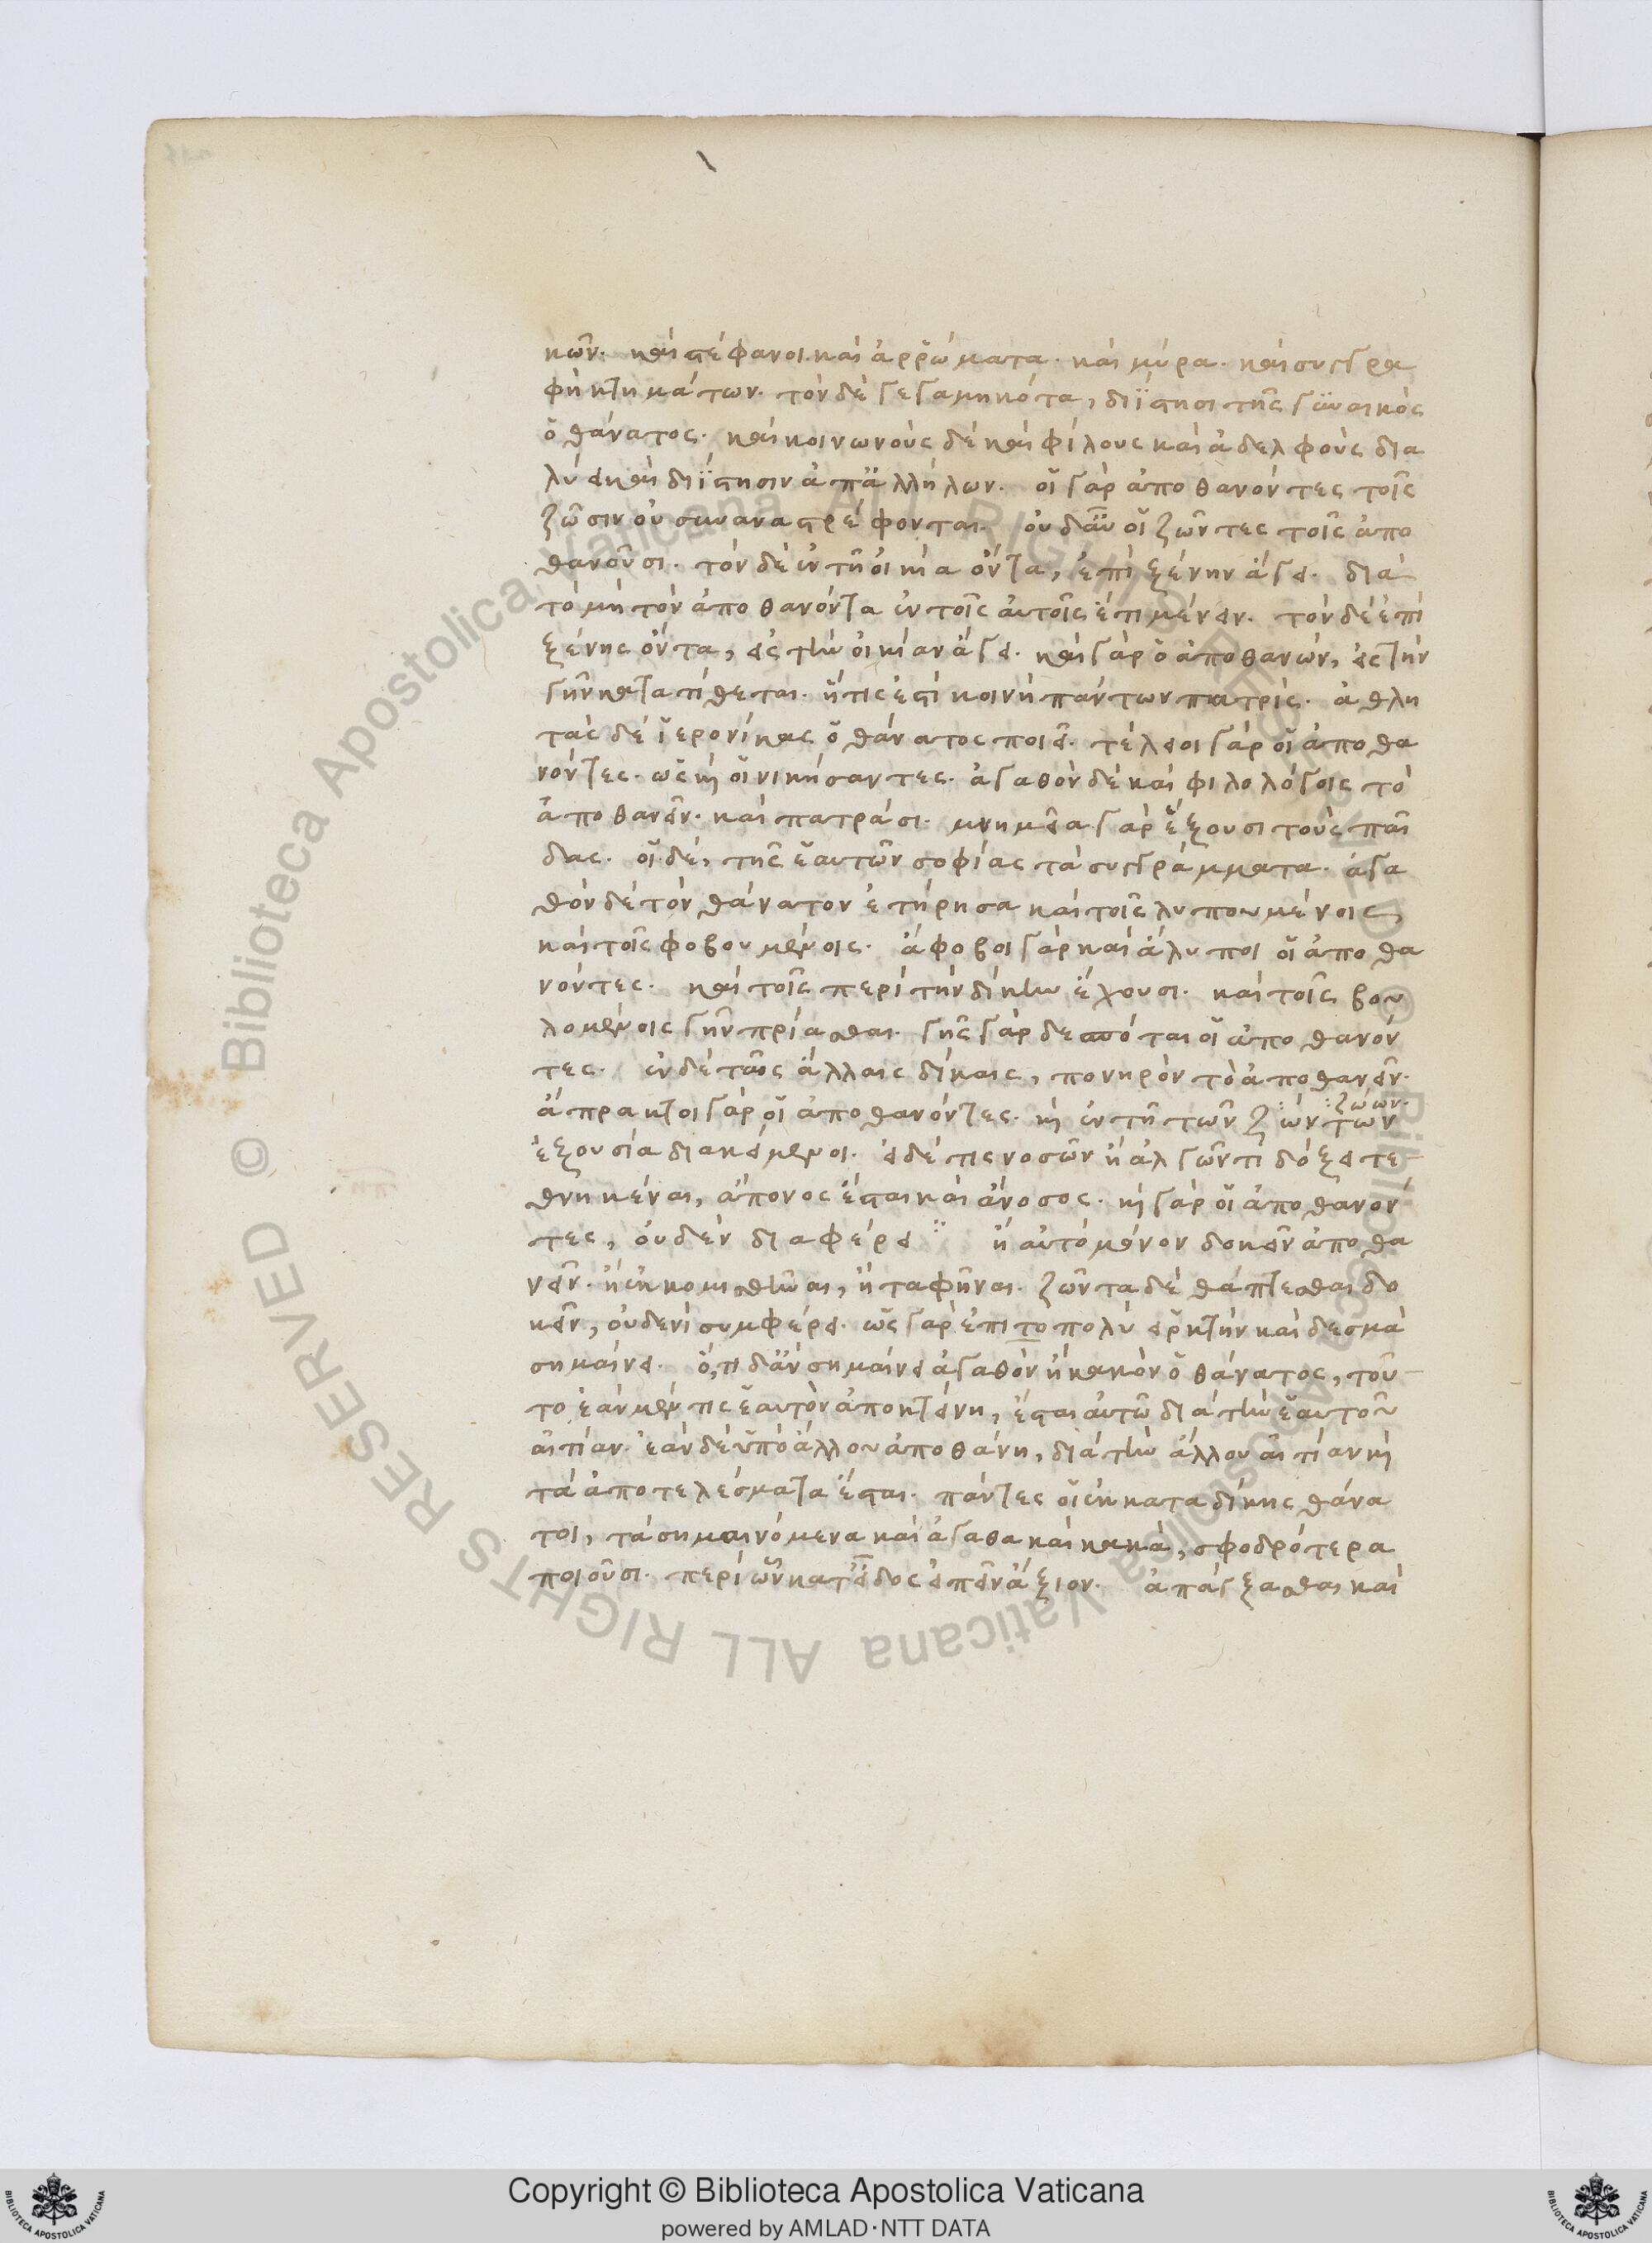 κῶν. καὶ στέφανοι καὶ ἀρρώματα. καὶ μύρα. καὶ συγγρα
φὴ κτημάτων. τὸν δὲ γεγαμηκότα, διΐστησι τῆς γϋναικὸς
ὁ θάνατος. καὶ κοινωνοὺς δὲ καὶ φίλους καὶ ἀδελφοὺς δια
λύει καὶ διΐστησιν ἀπ' ἀλλήλων. οἱ γὰρ ἀποθανόντες τοῖς
ζῶσιν οὐ συναναστρέφονται. οὐδ' αὖ οἱ ζῶντες τοῖς ἀπο
θανοῦσι. τὸν δὲ ἐν τῇ οἰκία ὄντα, ἐπὶ ξένην ἄγει. διὰ
τὸ μὴ τὸν ἀποθανόντα ἐν τοῖς αὐτοῖς ἔτι μένειν. τὸν δὲ ἐπὶ
ξένης ὄντα, εἰς τὴν οἰκίαν ἄγει. καὶ γὰρ ὁ ἀποθανών, εἰς τὴν
γῆν κατατίθεται. ἥτις ἐστὶ κοινὴ πάντων πατρίς. ἀθλη
τὰς δὲ ἱερονίκας ὁ θάνατος ποιεῖ. τέλειοι γὰρ οἱ ἀποθα
νόντες. ὡς καὶ οἱ νικήσαντες. ἀγαθὸν δὲ καὶ φιλολόγοις τὸ
ἀποθανεῖν. καὶ πατράσι. μνημεῖα γὰρ ἕξουσι τοὺς παῖ
δας. οἱ δὲ, τῆς ἑαυτῶν σοφίας τὰ συγγράμματα. ἀγα
θὸν δὲ τὸν θάνατον ἐτήρησα καὶ τοῖς λυπουμένοις,
καὶ τοῖς φοβουμένοις. ἄφοβοι γὰρ καὶ ἄλυποι οἱ ἀποθα
νόντες. καὶ τοῖς περὶ τὴν δίκην ἔχουσι. καὶ τοῖς βου
λομένοις γῆν πρίασθαι. γῆς γὰρ δεσπόται οἱ ἀποθανόν
τες. ἐν δὲ ταῖς ἄλλαις δίκαις, πονηρὸν τὸ ἀποθανεῖν.
:ζώων.
ἄπρακτοι γὰρ οἱ ἀποθανόντες. καὶ ἐν τῇ τῶν ζ:ών:των
ἐξουσία διακείμενοι. εἰ δέ τις νοσῶν ἢ ἀλγῶν τι δόξει τε
θνηκέναι, ἄπονος ἔσται καὶ ἄνοσος. καὶ γὰρ οἱ ἀποθανόν
τες, οὐδὲν διαφέρει ἢ αὐτὸ μόνον δοκεῖν ἀποθα
νεῖν. ἢ ἐκκομισθῆναι, ἢ ταφῆναι. ζῶντα δὲ θάπτεσθαι δο
κεῖν, οὐδενὶ συμφέρει. ὡς γὰρ ἐπιτοπολὺ εἱρκτὴν καὶ δεσμὰ
σημαίνει. ὅ,τι δ' ἂν σημαίνει ἀγαθὸν ἢ κακὸν ὁ θάνατος, τοῦ
το ἐὰν μέν τις ἑαυτὸν ἀποκτείνῃ, ἔσται αὐτῶ διὰ τὴν ἑαυτοῦ
αἰτίαν. ἐὰν δὲ ὑπὸ ἄλλου ἀποθάνῃ, διὰ τὴν ἄλλου αἰτίαν καὶ
τὰ ἀποτελέσματα ἔσται. πάντες οἱ ἐκ καταδίκης θάνα
τοι, τὰ σημαινόμενα καὶ ἀγαθὰ καὶ κακὰ, σφοδρότερα
ποιοῦσι. περὶ ὧν κατ' εἶδος εἰπεῖν ἄξιον. ἀπάγξασθαι καὶ